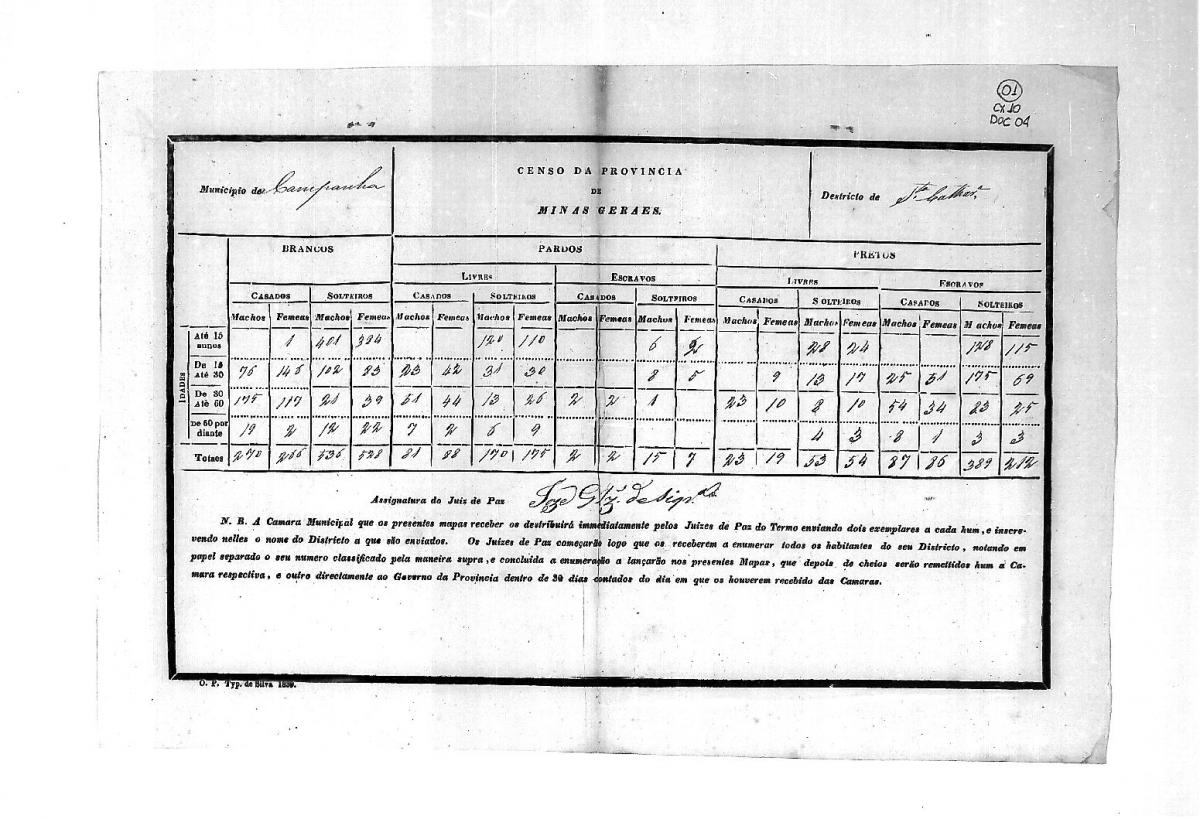 01
CX 10
DOC 04
Municipio da Campanha
CENSO DA PROVINCIA
DE
MINAS GERAES.
Destricto de Sta Cathar.ª
BRANCOS PARDOS PRETOS
LIVRES ESCRAVOS LIVRES ESCRAVOS
CASADOS SOLTEIROS CASADOS SOLTEIROS CASADOS SOLTEIROS CASADOS SOLTEIROS CASADOS SOLTEIROS
Machos Femeas Machos Femeas Machos Femeas Machos Femeas Machos Femeas Machos Femeas Machos Femeas Machos Femeas Machos Femeas Machos Femeas
IDADES
Até 15 annos 1 401 384 120 110 6 2 28 24 128 115
De 15 Até 30 76 146 102 83 23 42 31 30 8 5 9 13 17 25 51 175 69
De 30 Até 60 175 117 21 39 51 44 13 26 2 2 1 23 10 8 10 54 34 83 25
De 60 por diante 19 2 12 22 7 2 6 9 4 3 8 1 3 3
Totaes 270 266 536 528 81 88 170 175 2 2 15 7 23 19 53 54 87 86 389 212
Assignatura do Juiz de Paz
N. B. A Camara Municipal que os presentes mapas receber os destribuirá immediatamente pelos Juizes de Paz do Termo enviando dois exemplares a cada hum, e inscre-
vendo nelles o nome do Districto a que são enviados. Os Juizes de Paz começarão logo que os receberem a enumerar todos os habitantes do seu Districto, notando em
papel separado o seu numero classificado pela maneira supra, e concluida a enumeração a lançarão nos presentes Mapas, que depois de cheios serão remettidos hum á Ca-
mara respectiva, e outro directamente ao Governo da Provincia dentro de 30 dias contados do dia em que os houverem recebido das Camaras.
O. P. Typ. de Silva 1839.